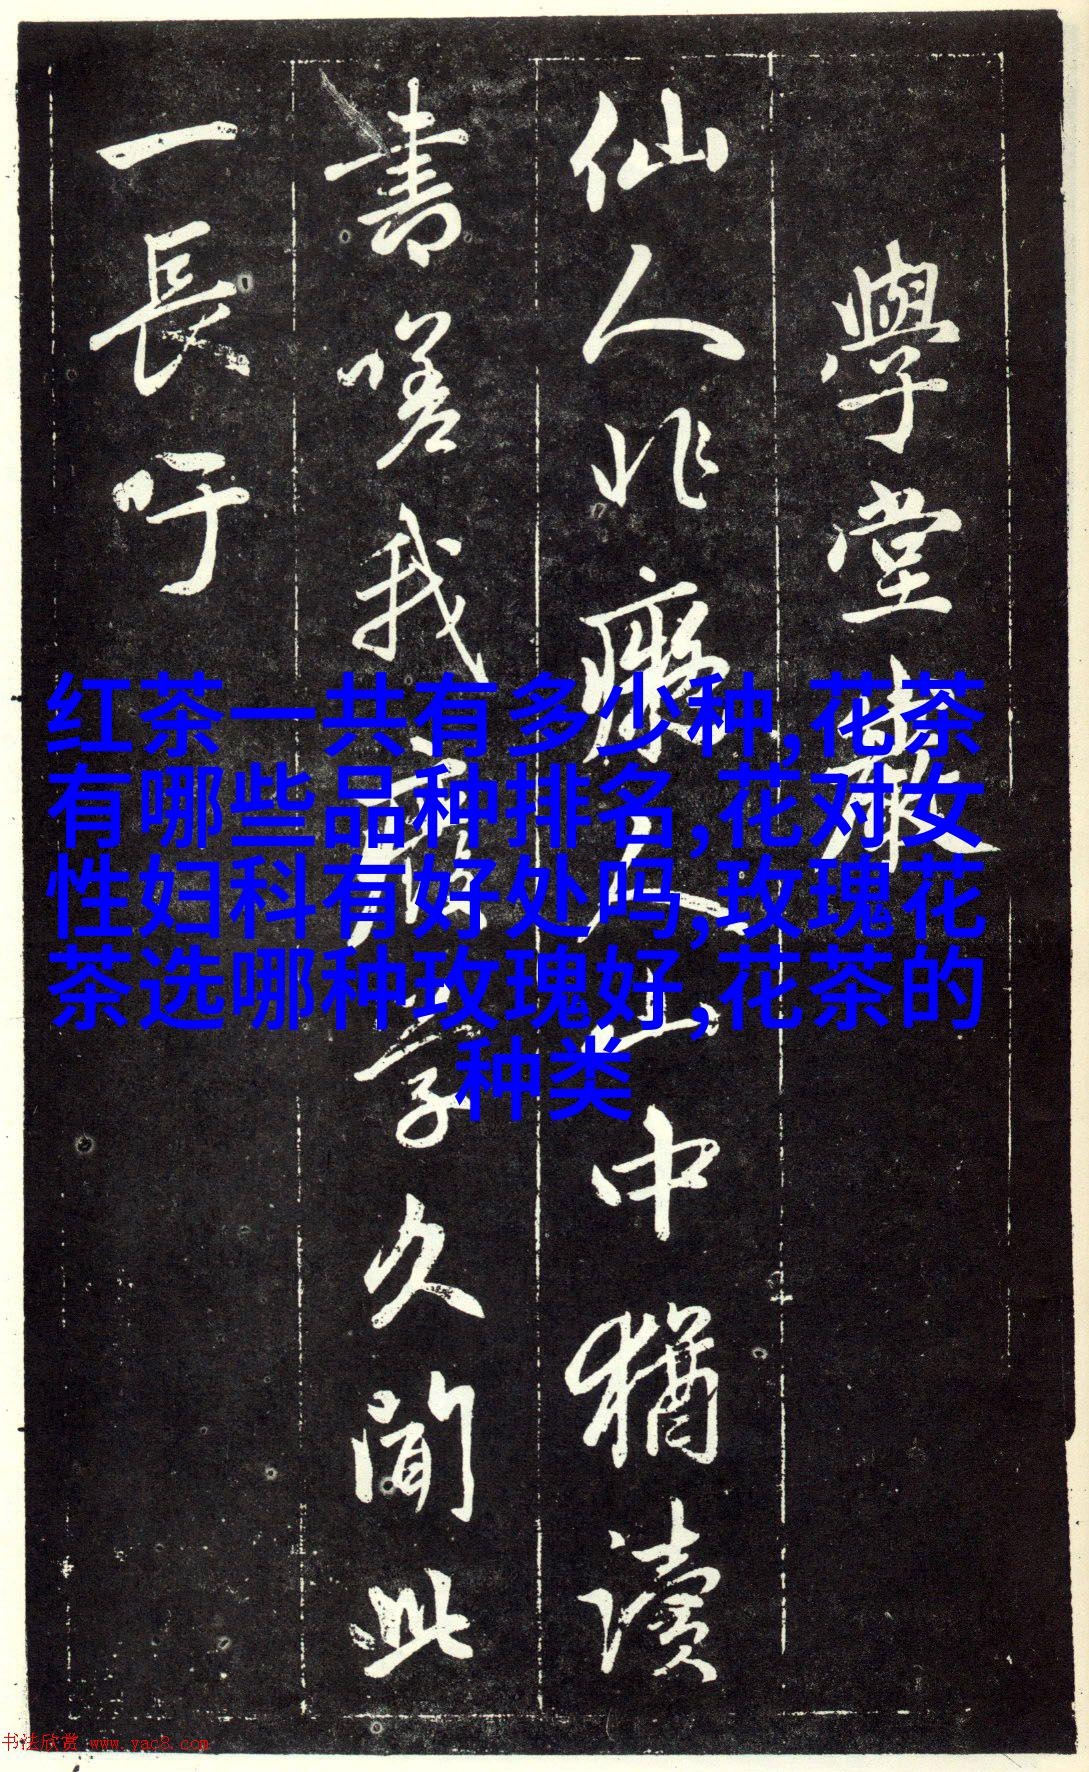 學堂巖
仙人非癡人山中猶讀
書嗟我學久聞此
一長吁
红茶一共有多少种,花茶
有哪些品种排名,花对女
性妇科有好处吗,玫瑰花
茶选哪种玫瑰好,花茶的
种类
书法欣赏 www.yac8.com